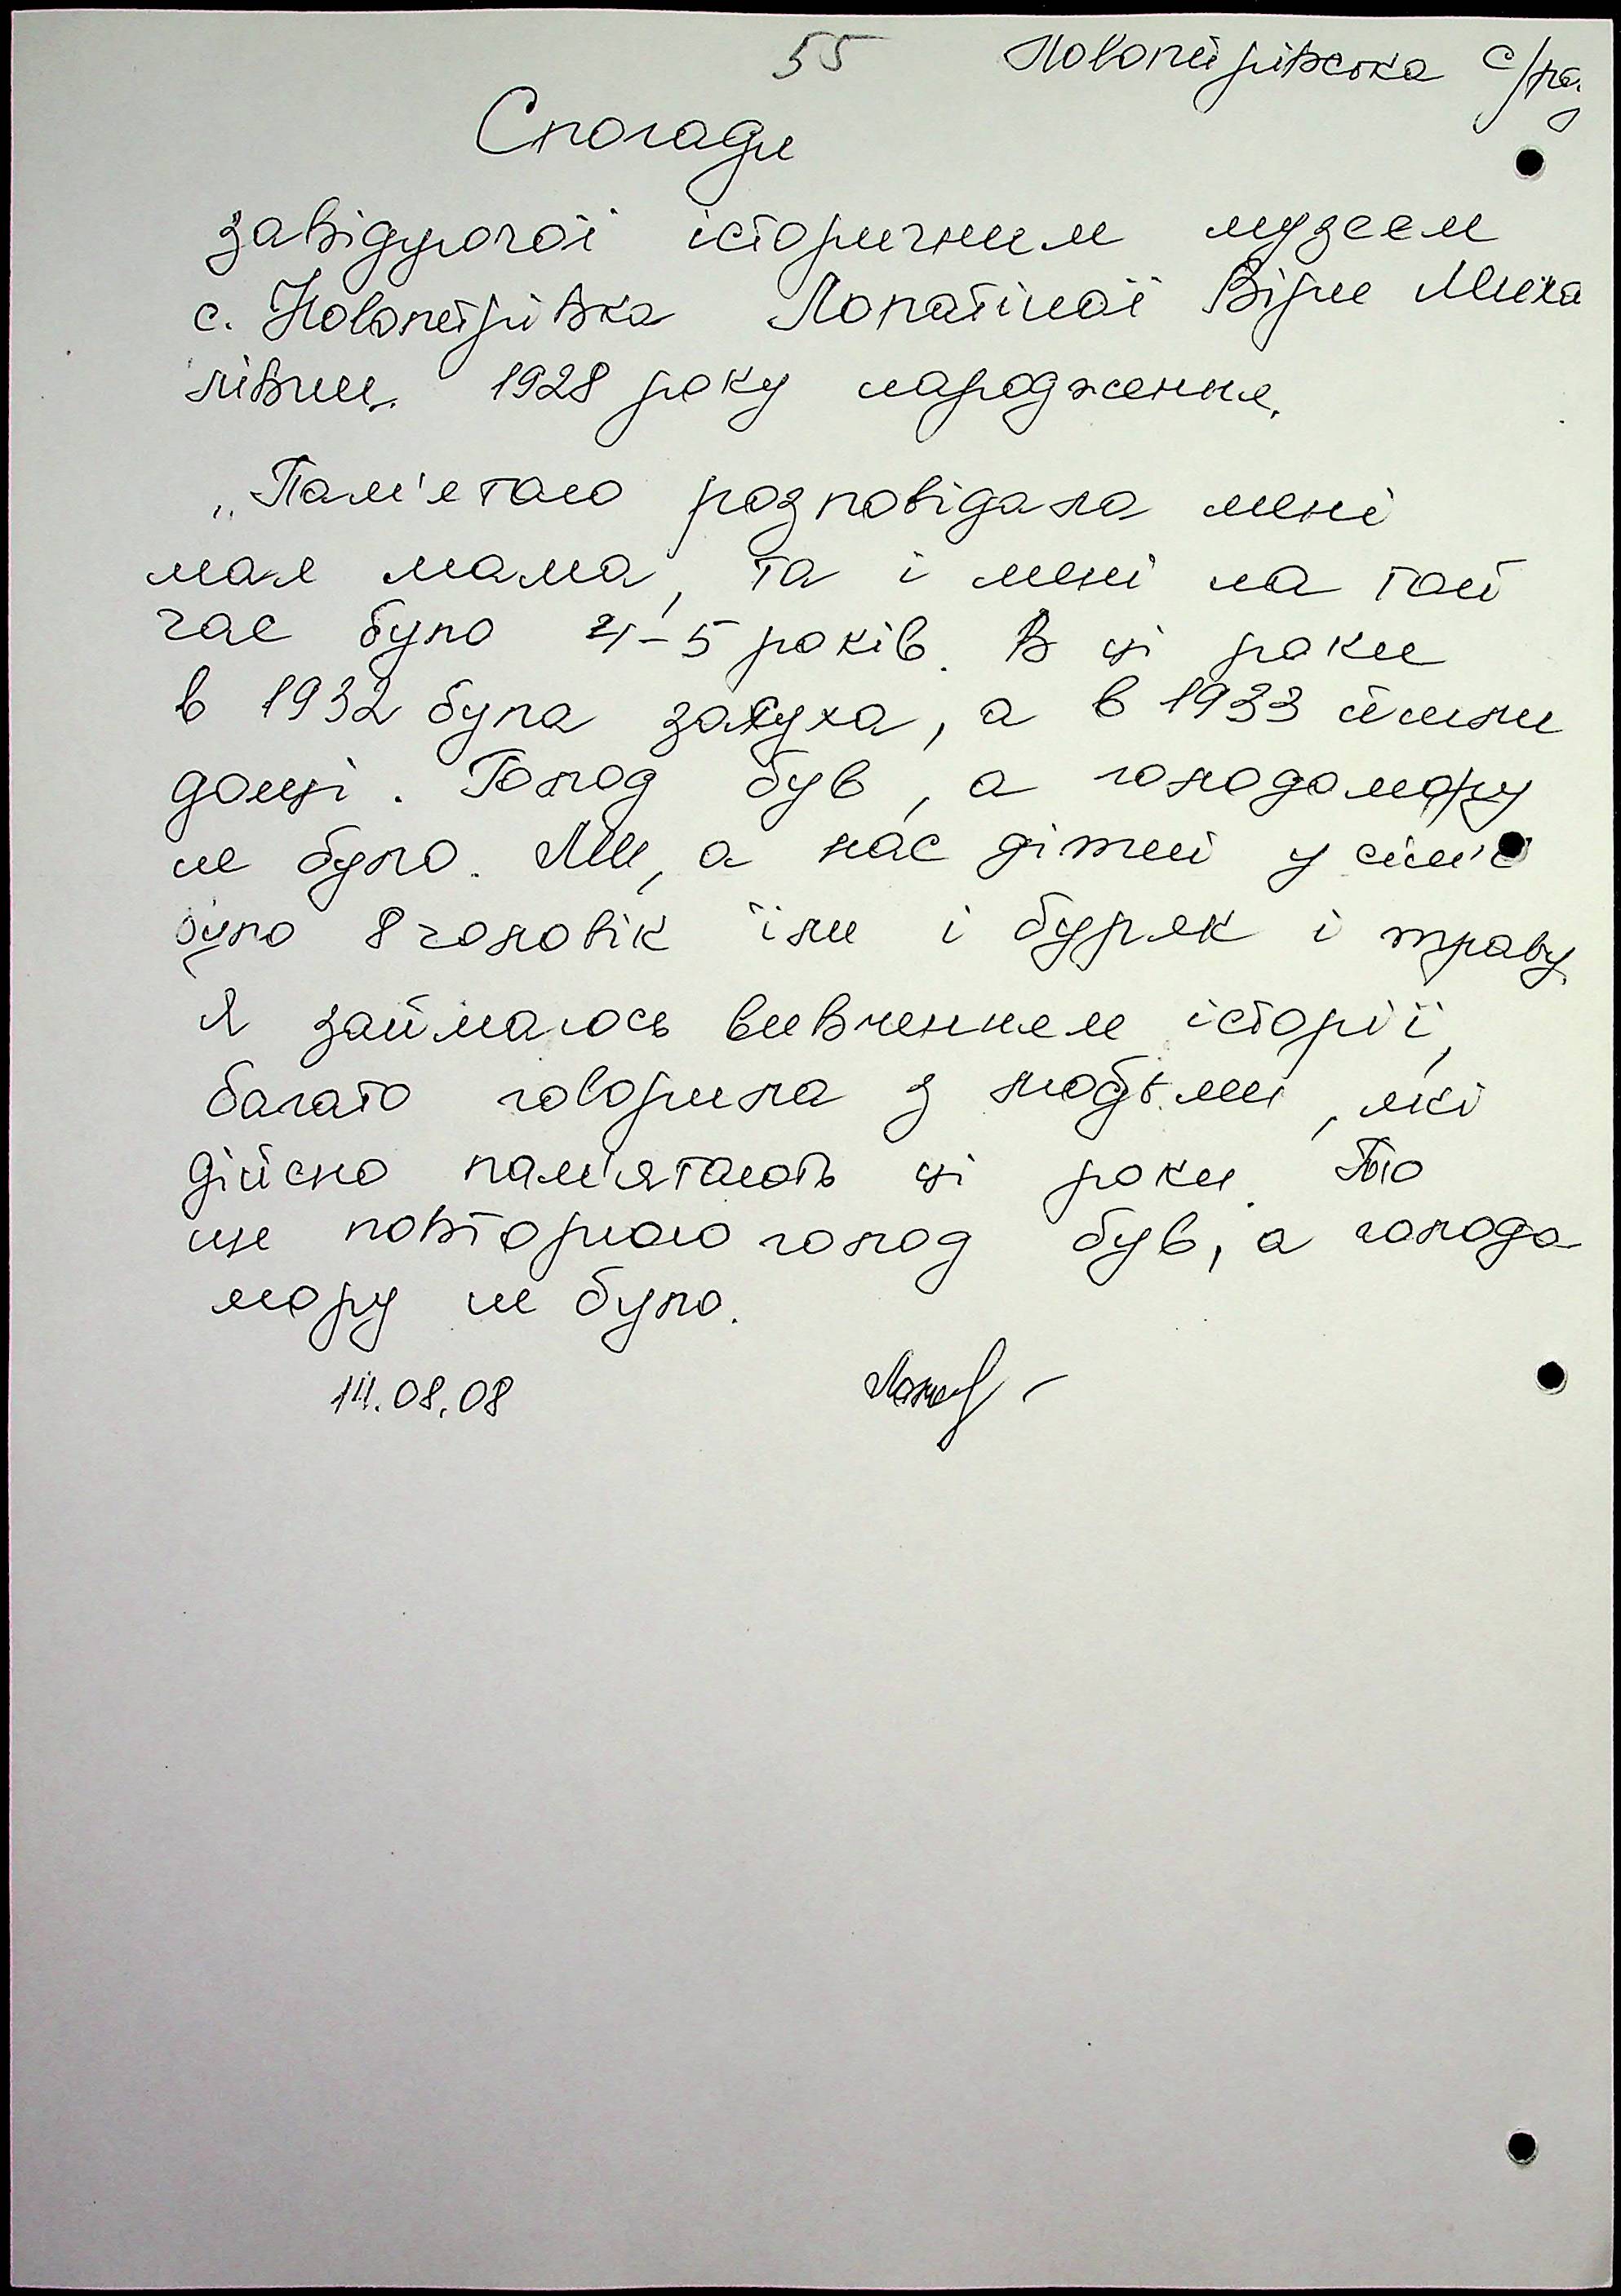 55 Новопетрівська с/рад
Спогади
завідуючої історичним музеєм
с. Новопетрівка Лопатіної Віри Миха
лівни. 1928 року народження.
„Пам'ятаю розповідала мені
моя мама, та і мені на той
час було 4-5 років. В ці роки
в 1932 була засуха, а в 1933 йшли
дощі. Голод був, а голодомору
не було. Ми, а нас дітей у сім'ї
було 8 чоловік їли і буряк і траву.
Я займаюсь вивченням історії,
багато говорила з людьми, які
дійсно пам'ятають ці роки. То
ще повторюю голод був, а голодо
мору не було.
14.08.08